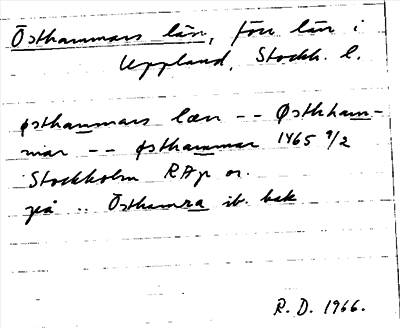 Östhammars län, förr län i
Uppland, Stockh. l.
østhammars læn -- Østhham-
mar -- østhammar 1465 9/2
Stockholm RAp or.
på .. Östhamra ib. bak
R. D. 1966.